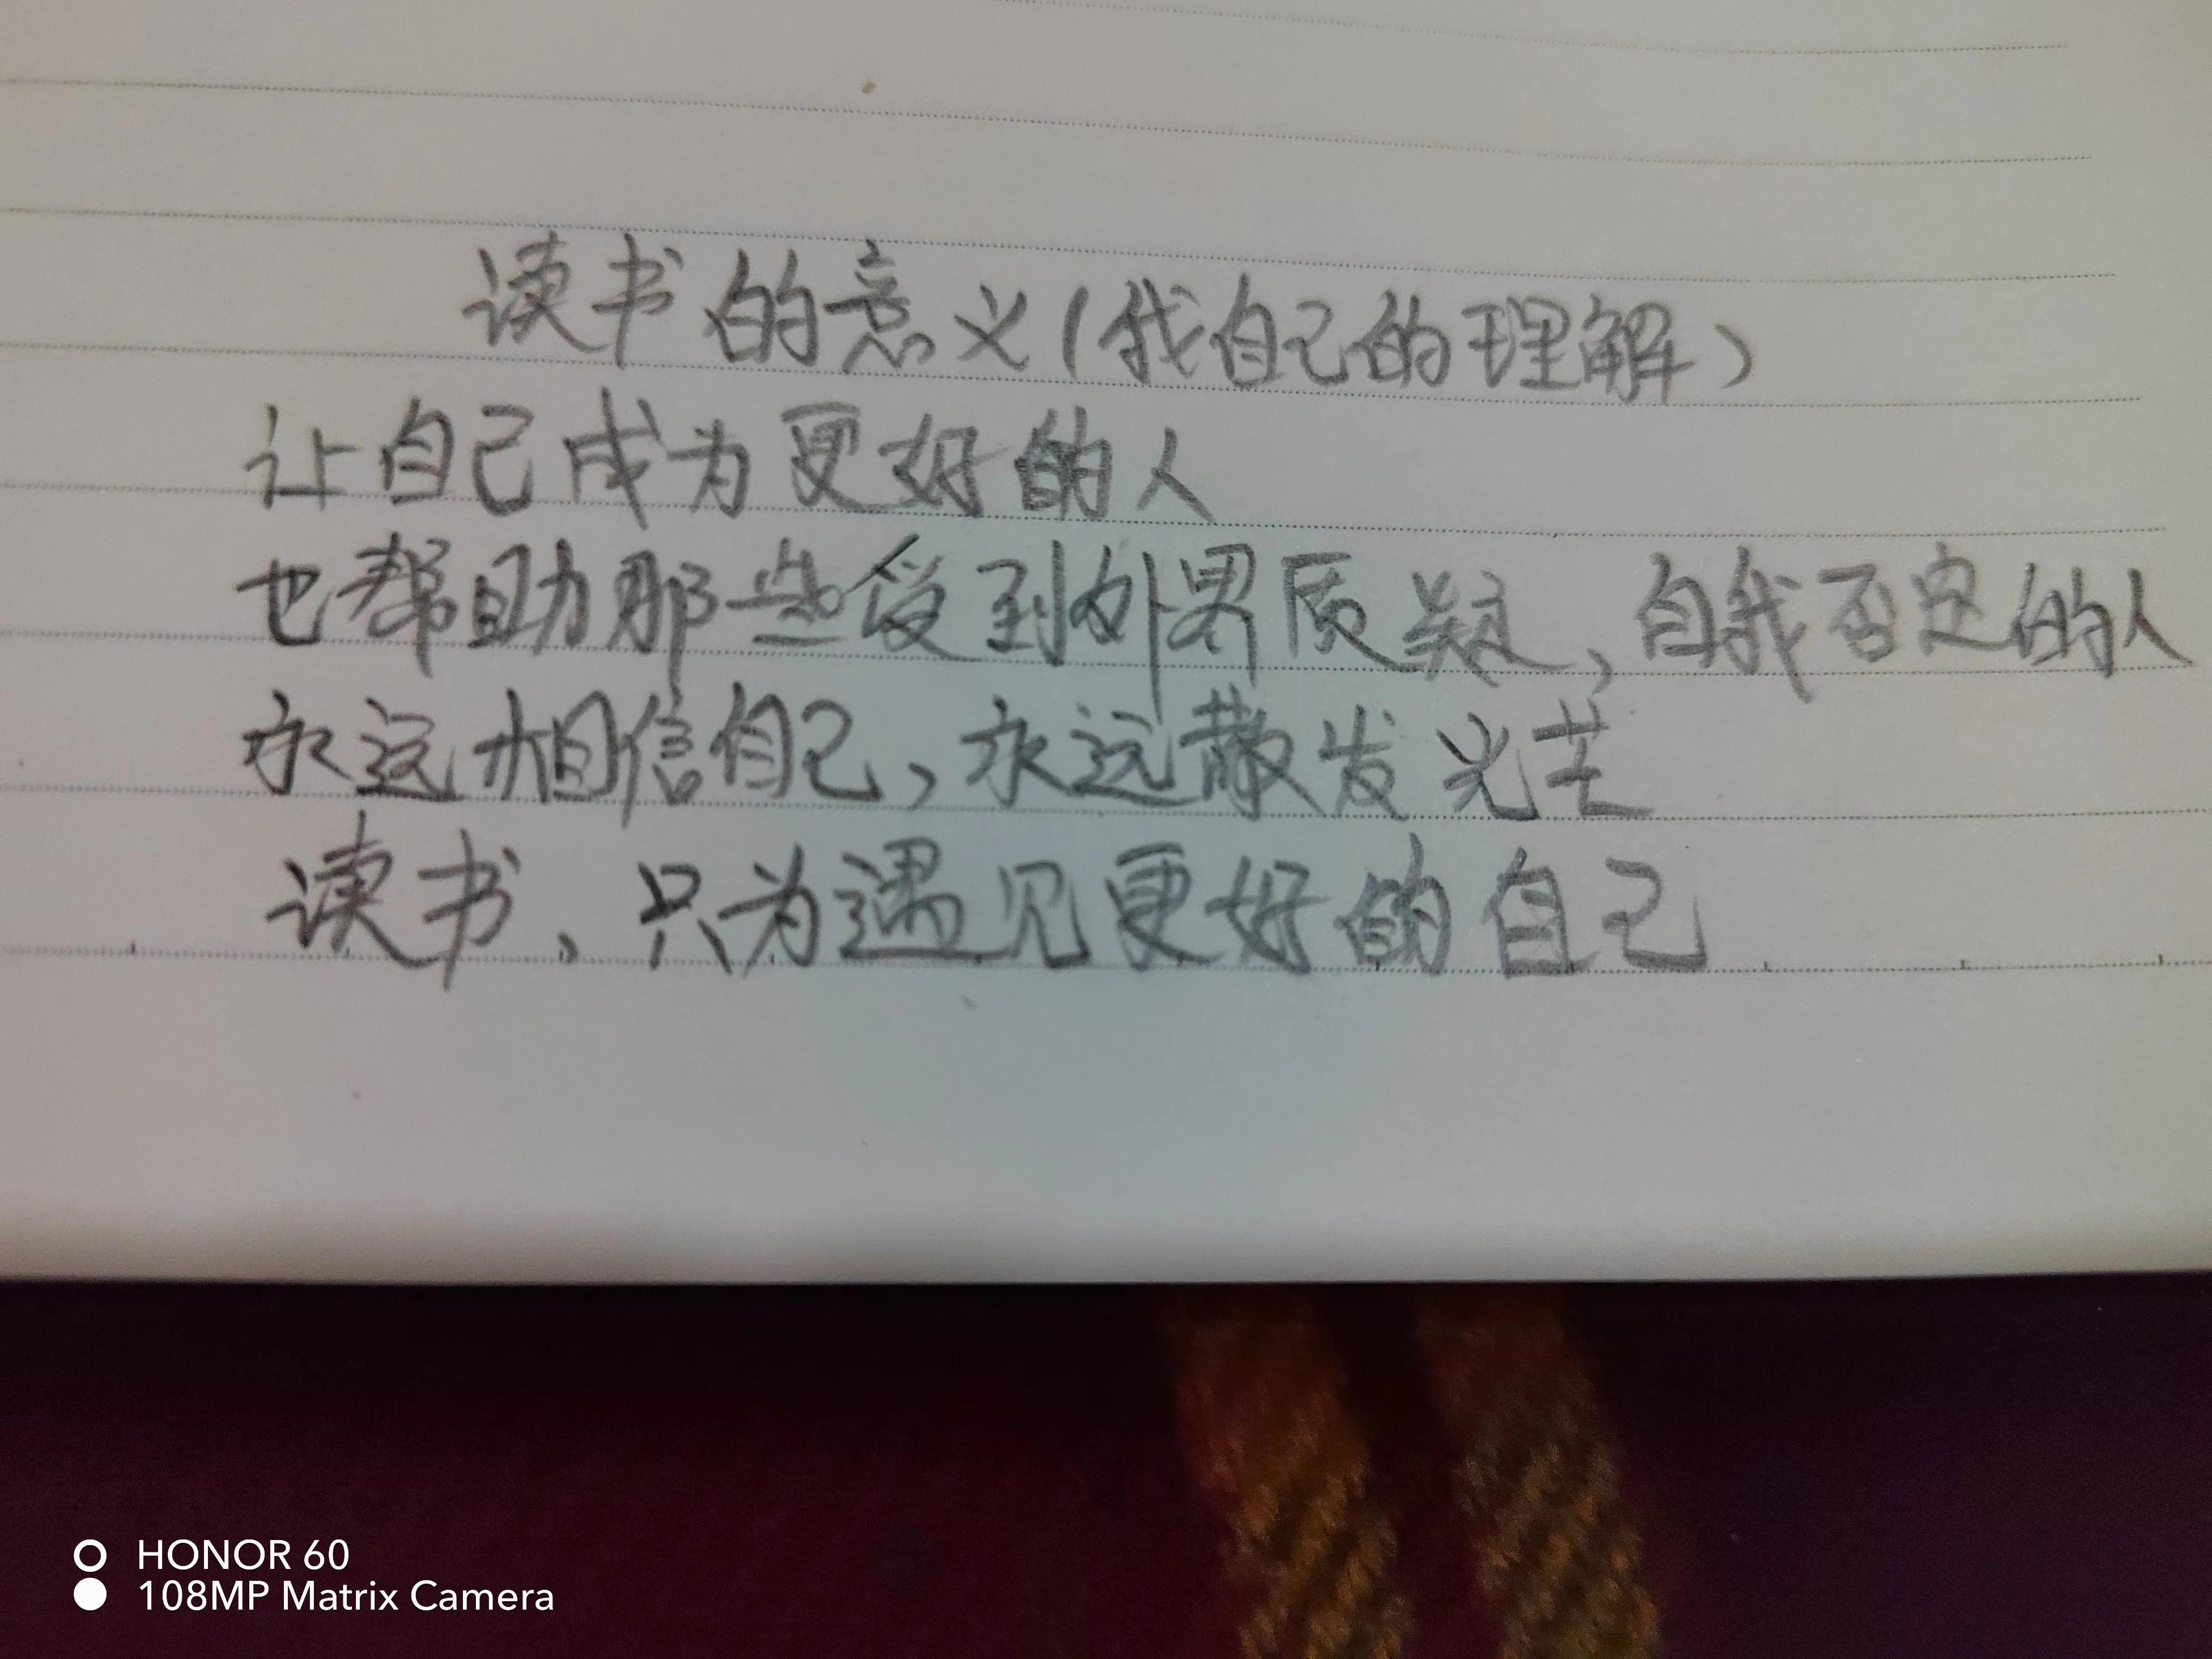 读书的意义(我自己的理解)
让自己成为更好的人
也帮助那些受到外界质疑,自我否定的人
永远相信自己,永远散发光芒
读书,只为遇见更好的自己
HONOR 60
108MP Matrix Camera